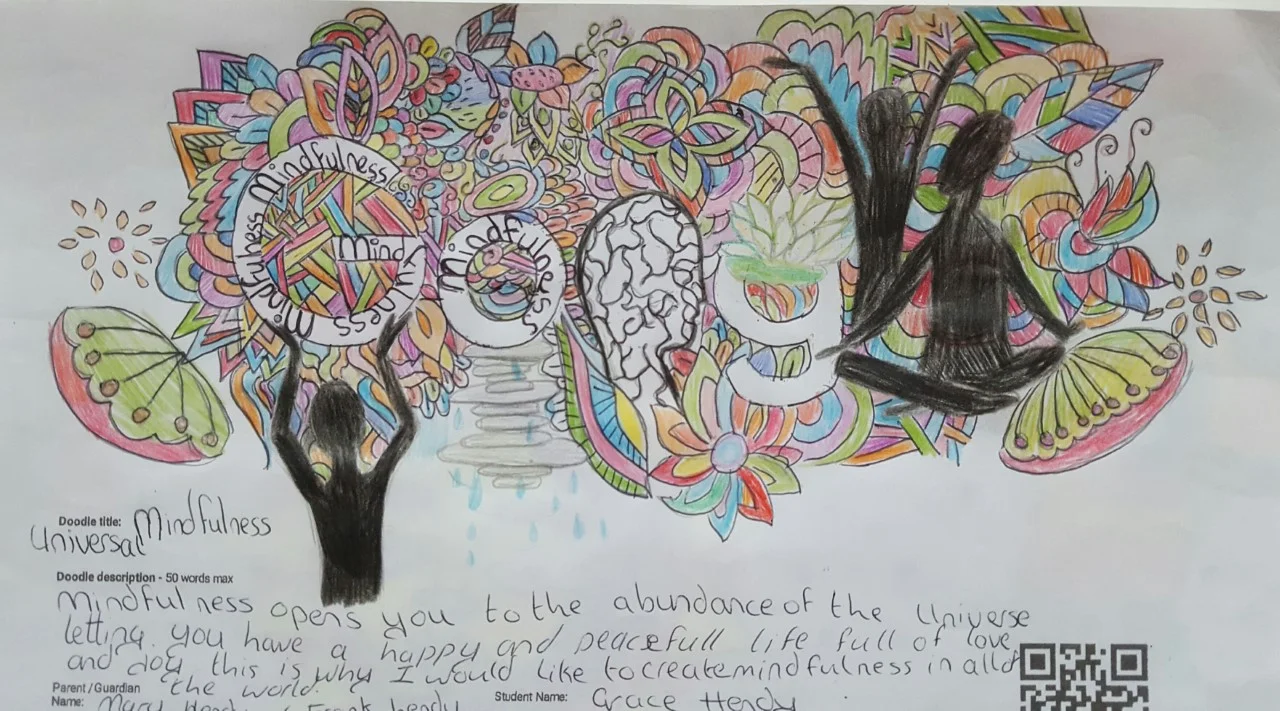 Mindfulness Mindfulness Mindfulness
Mindfulness
Mindfulness
Doodle title: Mindfulness
Universal
Doodle description - 50 words max
Mindfulness opens you to the abundance of the Universe
letting you have a happy and peacefull life full of love
and joy this is why I would like to create mindfulness in all of
the world.
Parent / Guardian
Name: Mary Hendy / Frank hendy
Student Name: Grace Hendy